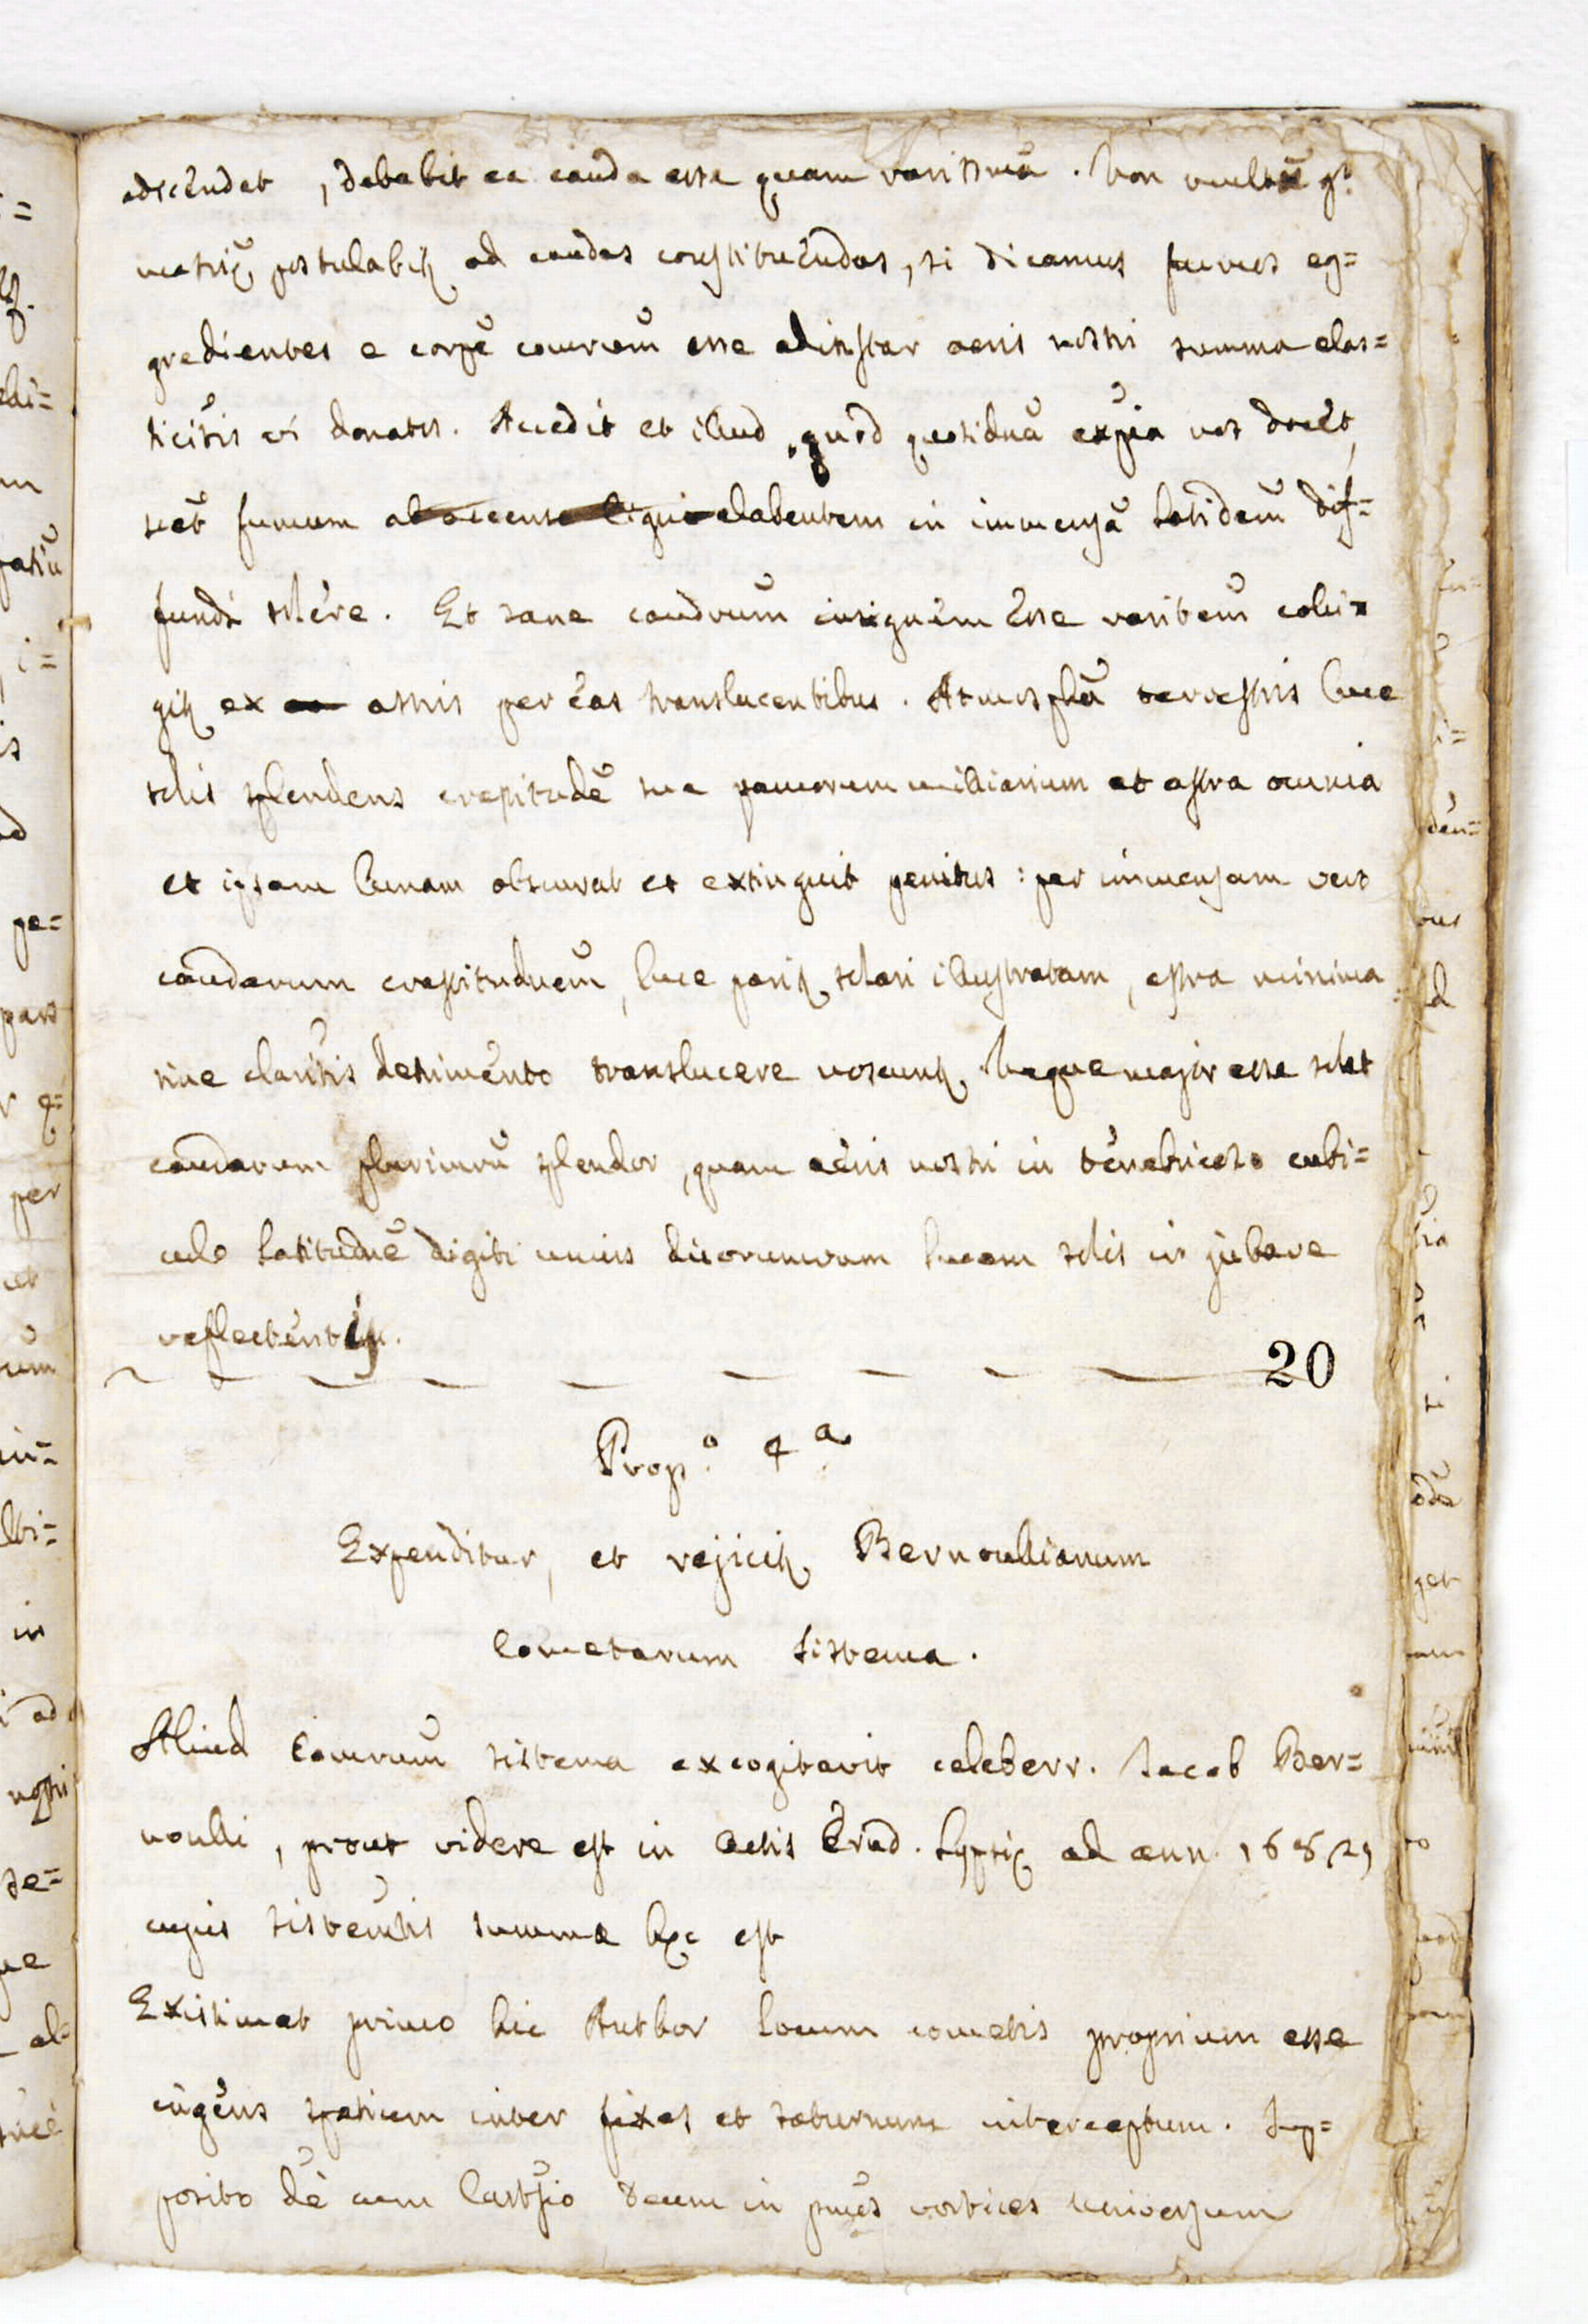 adscendet, debebit ea cauda esse quam rarissima. Non multum
materiæ postulabitur ad caudas constituendas, si dicamus fumos eg=
gredientes e corpe cometarum esse ad instar aeris nostri summa elas=
ticitatis vi donatos. Accedit et illud, quod quotidiana expia nos docet,
scet fumum elabentem in immensam latitudinem dif=
fundi solere. Et sane caudarum insignem esse raritatem colli=
gitur ex astris per eas translucentibus. Atmosphæra terrestris luce
solis splendens crassitudine sua paucorum milliarium et astra omnia
et ipsam lunam obscurat et extinguit penitus: per immensam vero
caudarum crassitudinem, luce pariter solari illustratam, astra minima
sine claritatis detrimento translucere noscuntur. Neque major esse solet
caudarum plurimarum splendor, quam aeris nostri in tenebricoso cubi=
culo latitudine digiti unius duorumvum lucem solis in jubare
reflectentis.
20
Propº. 4ª.
Expenditur, et rejicitur Bernoullianum
Cometarum sistema.
Aliud Cometarum sistema excogitavit celeberr. Jacob Ber=
noulli, prout videre est in Actis Erud. Lypsiæ ad ann. 1682,
cujus sistematis summa hæc est
Existimat primo hic Author locum cometis proprium esse
ingens spatium inter fixas et saturnum interceptum. Sup=
posito de cum Cartesio Deum in plures vortices universum